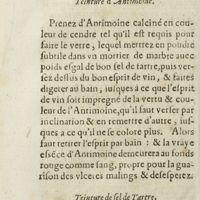 Teinture d'Antimoine.
Prenez d'Antimoine calciné en cou-
leur de cendre tel qu'il est requis pour
faire le verre, lequel mettrez en poudre
subtile dans vn mortier de marbre auec
poids esgal de bon sel de tartre, puis ver-
sez dessus du bon esprit de vin, & faites
digerer au bain, iusques à ce que l'esprit
de vin soit impregné de la vertu & cou-
leur de l'Antimoine, qu'il faut verser par
inclination & en remettre d'autre, ius-
ques à ce qu'il ne se colore plus. Alors
faut retirer l'esprit par bain : & la vraye
essēce d'Antimoine demeurera au fonds
rouge comme sang, propre pour la gua-
rison des vlceres malings & desesperez.
Teinture de sel de Tartre.